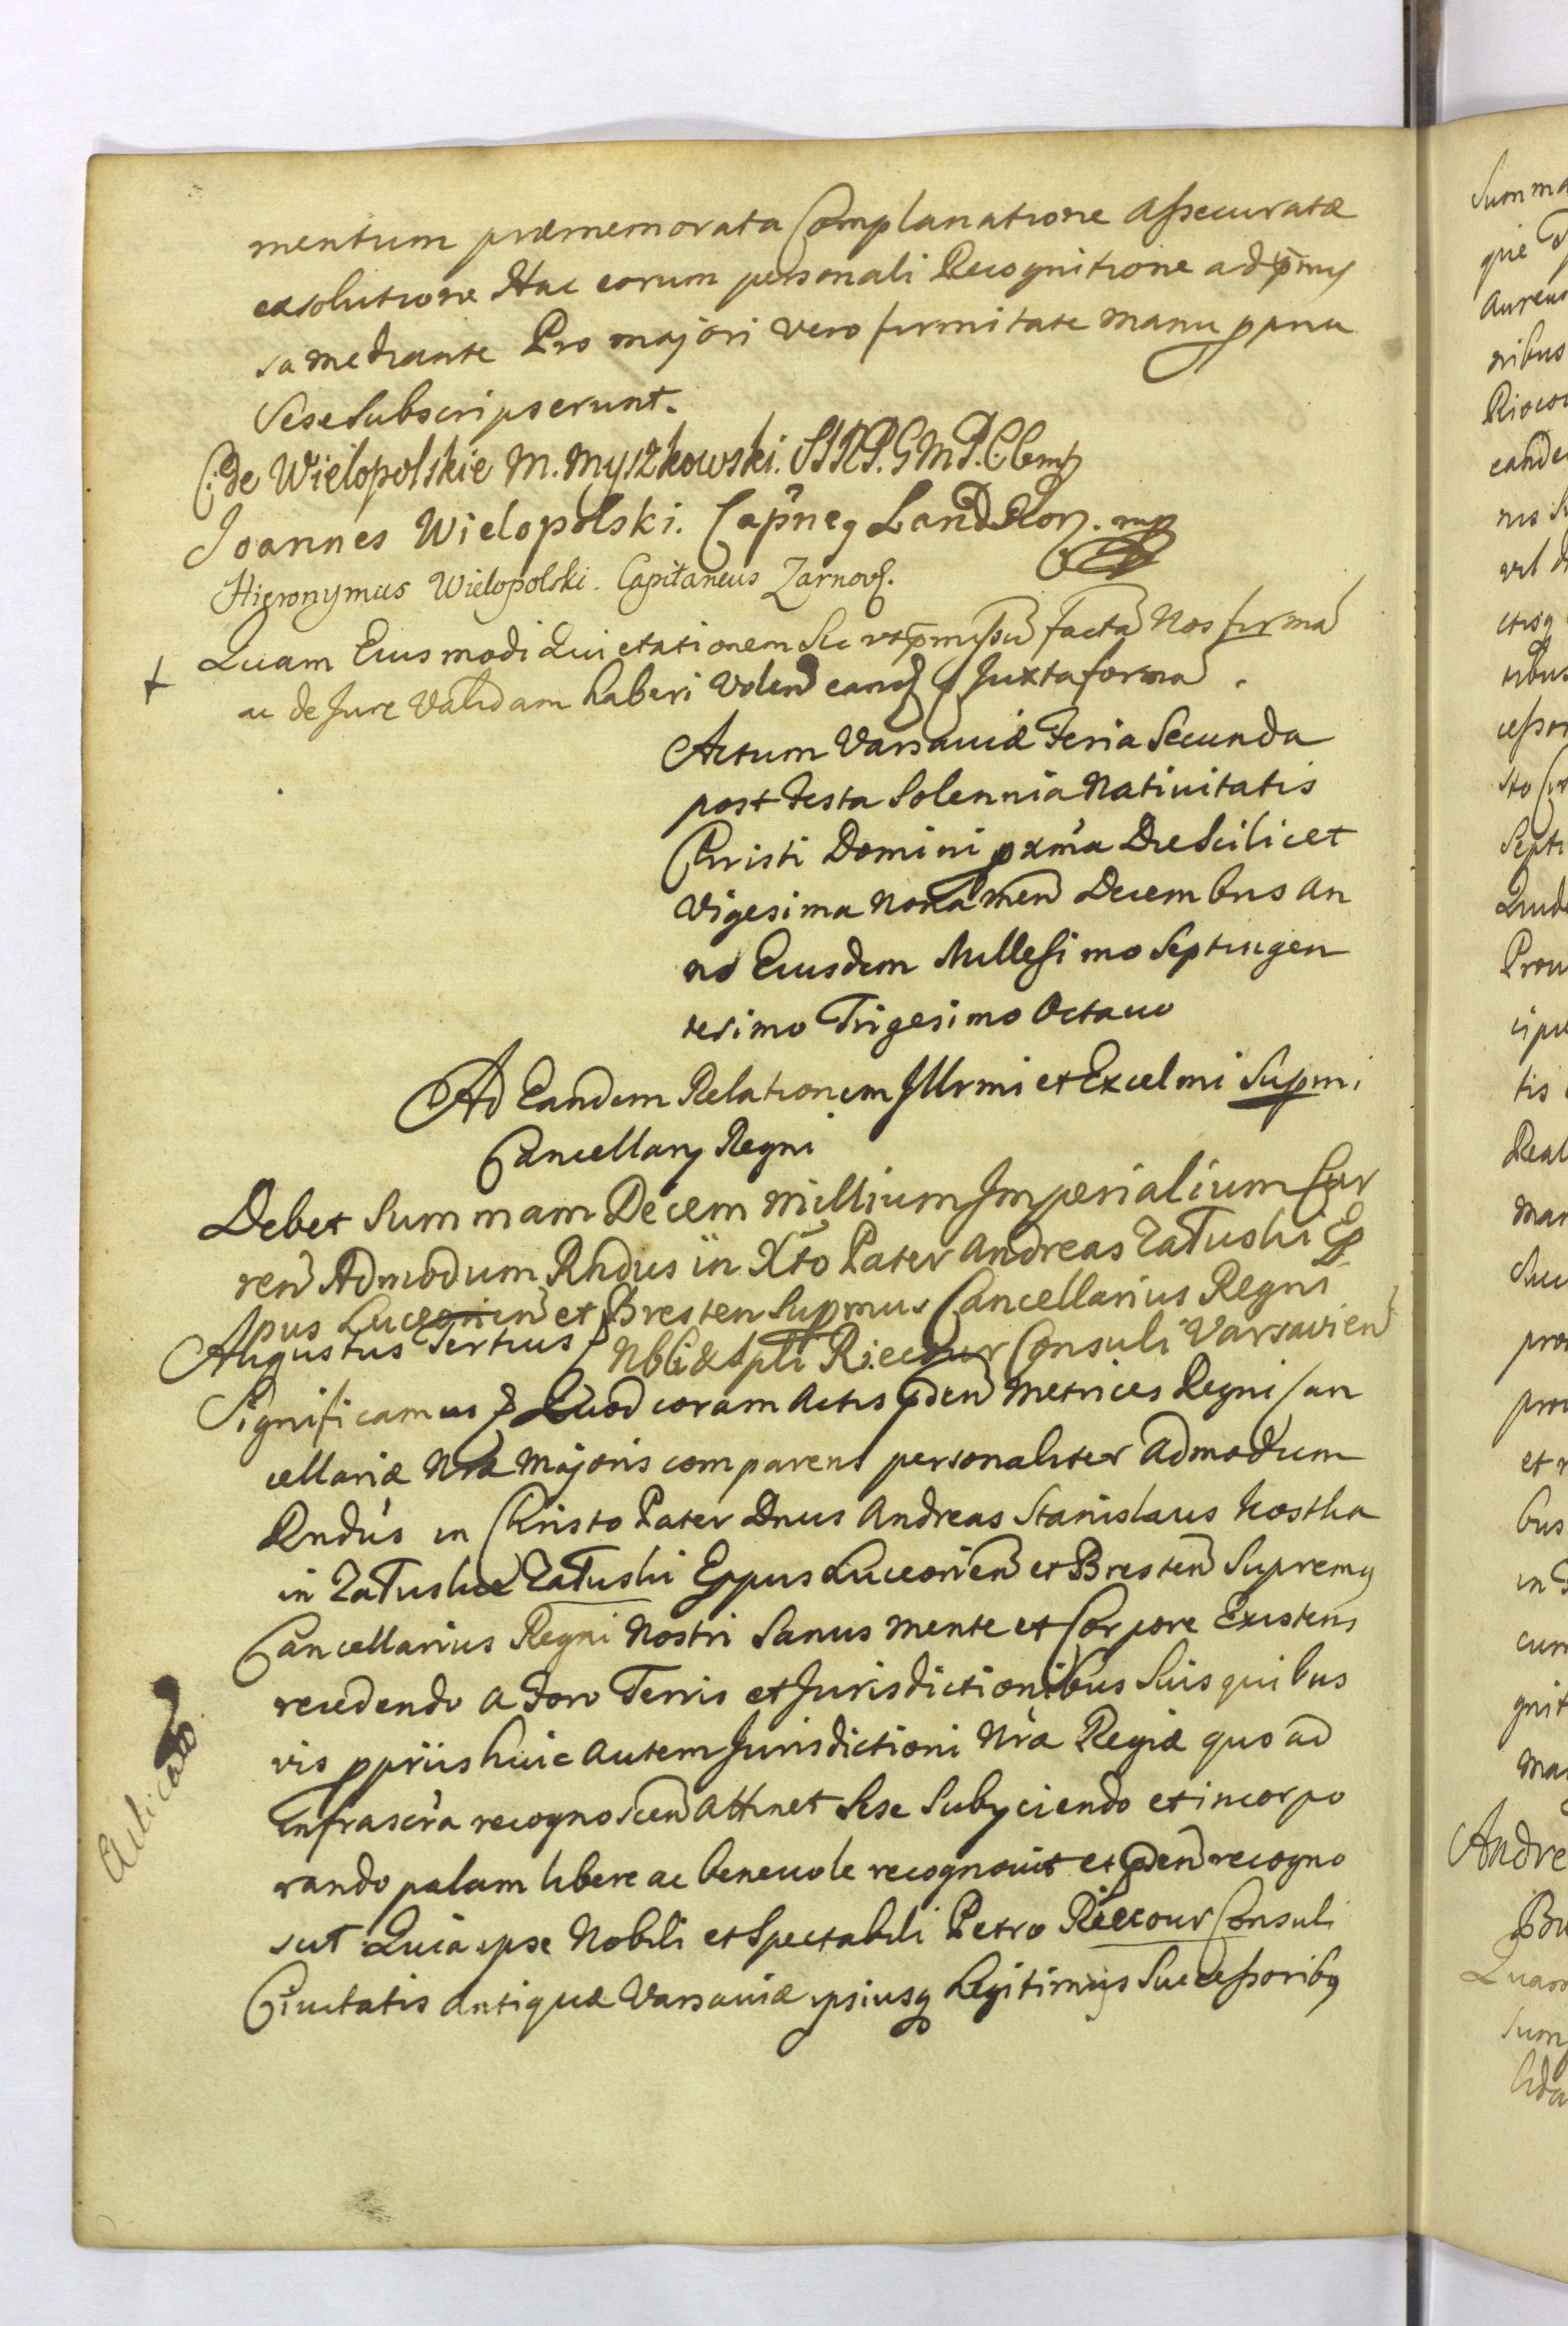 mentum præmemorata Complanatione assecuratæ
exsolutione Hac eorum personali Recognitione ad p̃mis
sa mediante Pro majori vero firmitate manu ppria
Sese Subscripserunt.
C: de Wielopolskie M. Myszkowski. S.I.R.P. G.M.P. C.
Joannes Wielopolski. Cap̃neq Land. mp
Hieronymus Wielopolski. Capitaneus Zarnov.
Quam Eiusmodi Quietationem Sic ut p̃missũ factã Nos firmã
ac de Jure Validam haberi Volen̄ eand Juxta formã.
Actum Varsaviæ Feria Secunda
post Festa Solennia Nativitatis
Christi Domini pxmã Die Scilicet
Vigesima Nona men̄ Decembris An
no Eiusdem Millesimo Septingen
tesimo Trigesimo Octavo
Ad Eandem Relationem Illrmi et Excelmi Supmi
Cancellarij Regni
Debet Summam Decem Millium Imperialium Cur
ren̄ Admodum Rndus in Xto Pater Andreas Załuski Ep
pus Luceorien̄ et Bresten Supmus Cancellarius Regni
Augustus Tertius Nbli & Spli Riecour Consuli Varsavien̄
Significamus Quod coram Actis p̃den̄ Metrices Regni Can
cellariæ Nræ Majoris comparens personaliter Admodum
Rndus in Christo Pater Dnus Andreas Stanislaus Kostka
in Załuskie Załuski Eppus Luceorien̄ et Bresten̄ Supremq
Cancellarius Regni Nostri Sanus mente et Corpore Existens
recedendo a Foro Terris et Jurisdictionibus Suis quibus
vis ppriis huic autem Jurisdictioni Nræ Regiæ quo ad
Infrascra recognoscen̄ Attinet Sese Subijciendo et incorpo
rando palam libere ac benevole recognovit et p̃den̄ recogno
scit Quia ipse Nobili et Spectabili Petro Riecour Consuli
Civitatis Antiquæ Varsaviæ ipsiusq Legitimis Successoribq
Summa
Aureos
nibus
Andre